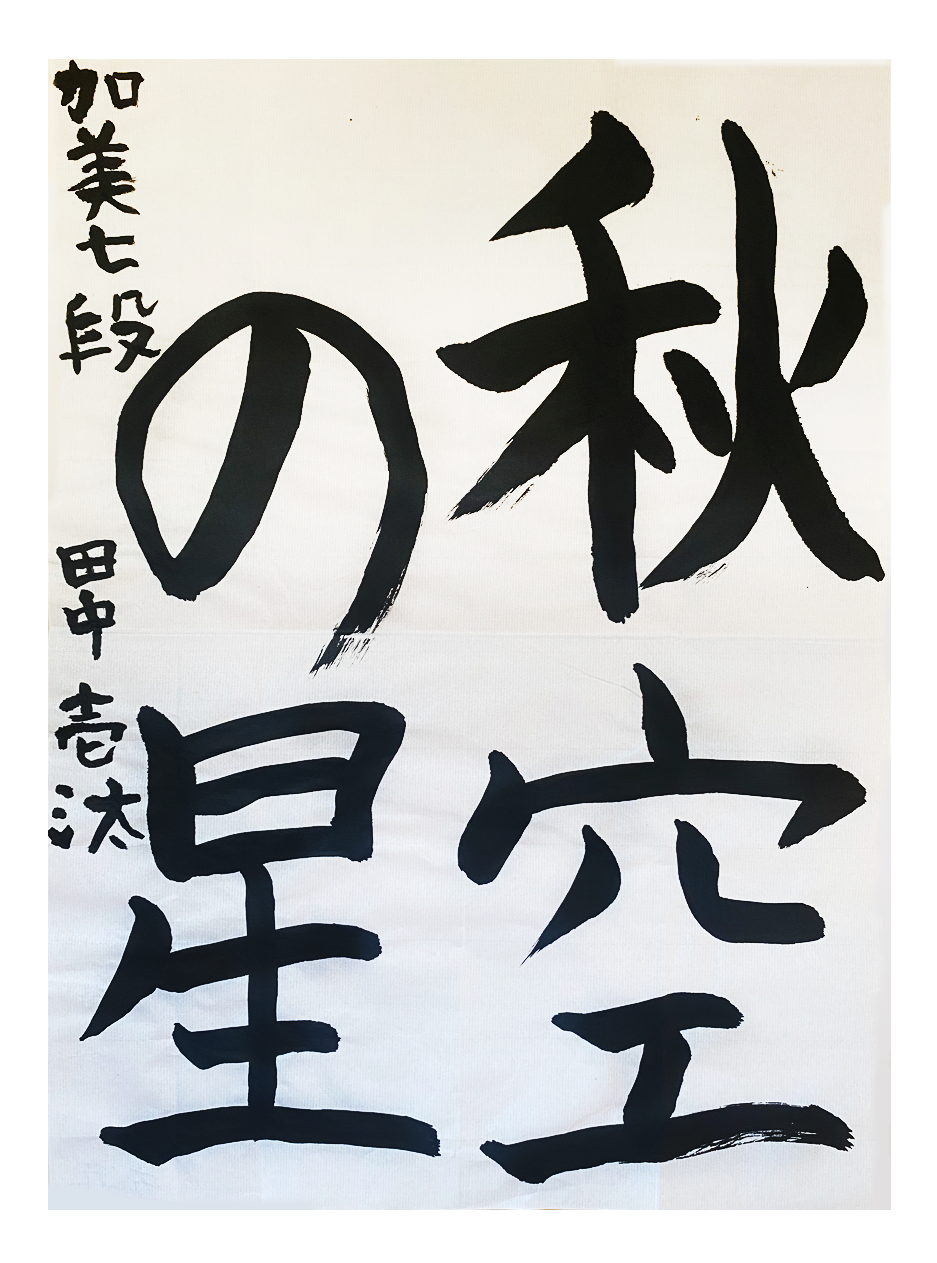 秋空
の星
加美七段 田中 壱汰